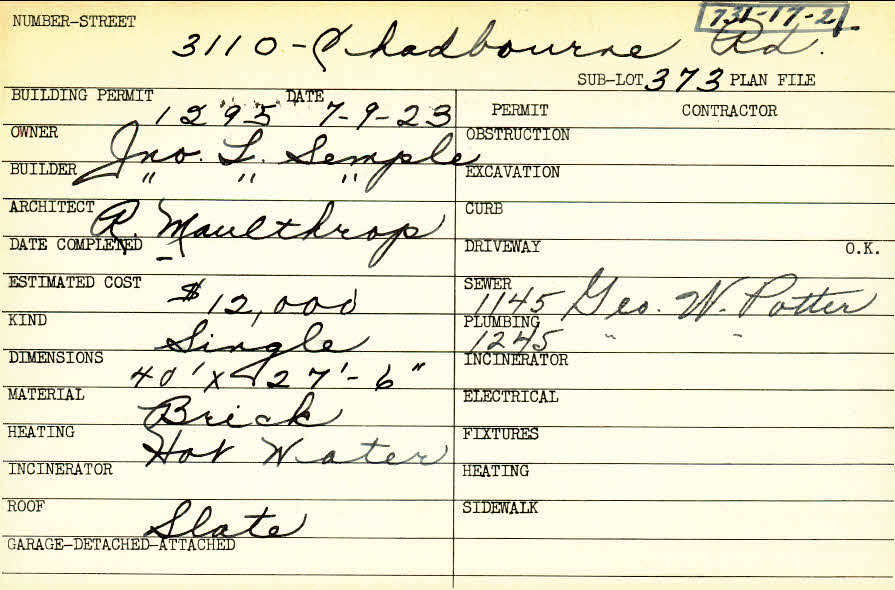 NUMBER-STREET 731-17-21
3110-Chadbourne Rd.
SUB-LOT 373 PLAN FILE
BUILDING PERMIT 1295 DATE 7-9-23
OWNER Jno. L. Semple
BUILDER " " "
ARCHITECT R. Maulthrop
DATE COMPLETED -
ESTIMATED COST $12,000
KIND Single
DIMENSIONS 40' x 27'-6"
MATERIAL Brick
HEATING Hot Water
INCINERATOR
ROOF Slate
GARAGE-DETACHED-ATTACHED
PERMIT CONTRACTOR
OBSTRUCTION
EXCAVATION
CURB
DRIVEWAY O.K.
SEWER 1145 Geo. W. Potter
PLUMBING 1245 " "
INCINERATOR
ELECTRICAL
FIXTURES
HEATING
SIDEWALK